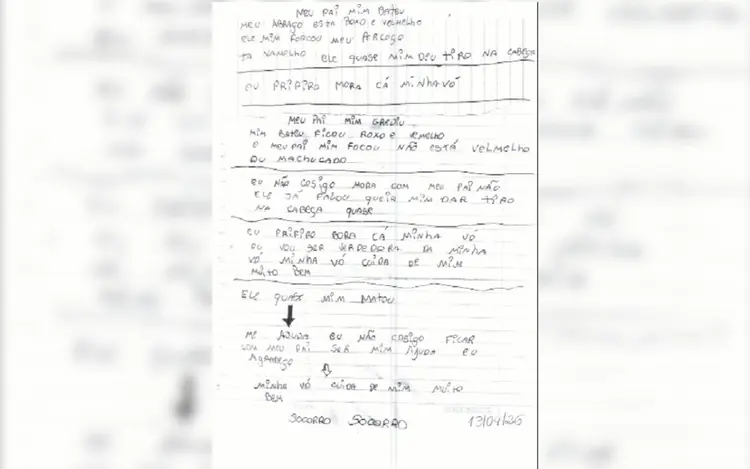 MEU PAI MIM BATEU
MEU ABRAÇO ESTA ROXO E VERMELHO
ELE MIM FORCOU MEU
TA VAMELHO ELE QUASE MIM DEU TIRO NA CABEÇA
EU PRIFIRO MORA CÁ MINHA VÓ
MEU PAI MIM GREDIU
MIM BATEU FICOU ROXO E VEMELHO
O MEU PAI MIM FOCOU NÃO ESTÁ VELMELHO
OU MACHUCADO
EU NÃO COSIGO MORA COM MEU PAI NÃO
ELE JÁ FALOU QUEIR MIM DAR TIRO
NA CABEÇA QUASE
EU PRIFIRO BORA CÁ MINHA VÓ
OU VOU SER VERDEDEIRA DA MINHA
VÓ MINHA VÓ CUIDA DE MIM
MUITO BEM
ELE QUASE MIM MATOU
ME AJUDA EU NÃO COSIGO FICAR
COM MEU PAI SER MIM AJUDA EU
AGRADEÇO
MINHA VÓ CUIDA DE MIM MUITO
BEM
SOCORRO SOCORRO 13/04/26